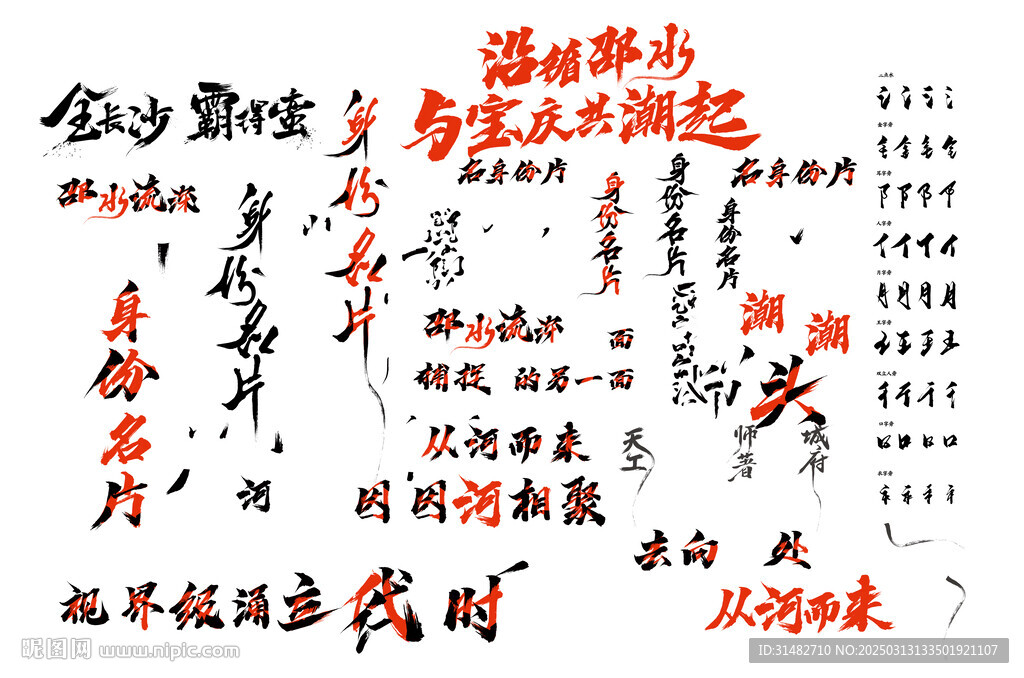 沿循邵水
与宝庆共潮起
全长沙 霸得蛮
邵水流深
身份名片
身份名片
身份名片
名身份片
身份名片
身份名片
身份名片
名身份片
邵水流深
面
捕捉 的另一面
从河而来
因因河相聚
河
潮
潮
头
节
天工
师著
城府
去向 处
视界级涌立代时
从河而来
三点水
金字旁
耳字旁
人字旁
月字旁
王字旁
双立人旁
口字旁
昵图网 www.nipic.com
ID:31482710 NO:20250313133501921107